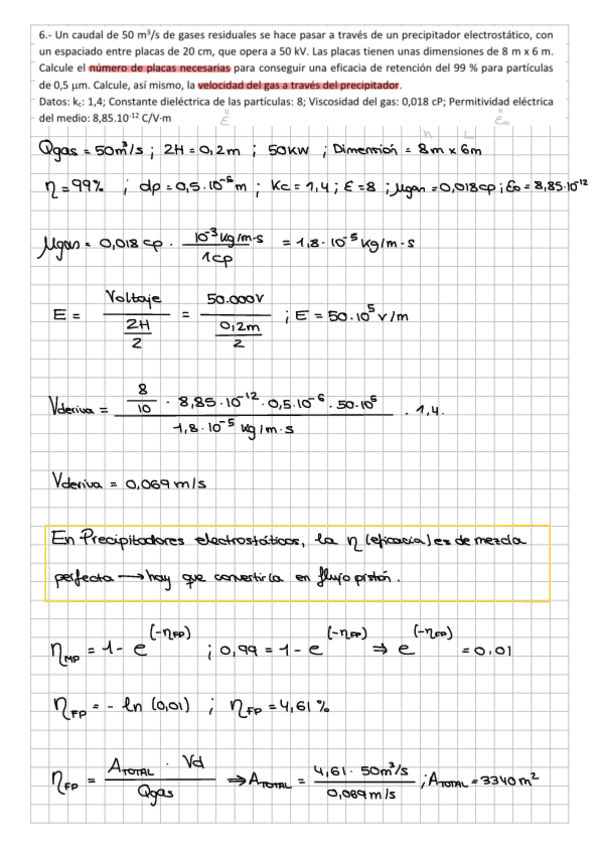 6.- Un caudal de 50 m³/s de gases residuales se hace pasar a través de un precipitador electrostático, con
un espaciado entre placas de 20 cm, que opera a 50 kV. Las placas tienen unas dimensiones de 8 m x 6 m.
Calcule el número de placas necesarias para conseguir una eficacia de retención del 99 % para partículas
de 0,5 µm. Calcule, así mismo, la velocidad del gas a través del precipitador.
Datos: kc: 1,4; Constante dieléctrica de las partículas: 8; Viscosidad del gas: 0,018 cP; Permitividad eléctrica
del medio: 8,85.10⁻¹² C/V·m
ε ε₀
h L
Qgas = 50m³/s ; 2H = 0,2m ; 50KW ; Dimensión = 8m x 6m
η = 99% ; dp = 0,5·10⁻⁶ m ; Kc = 1,4 ; ε = 8 ; µgas = 0,018cp ; ε₀ = 8,85·10⁻¹²
µgas = 0,018 cp · 10⁻³ Kg/m·s / 1cp = 1,8·10⁻⁵ Kg/m·s
E = Voltaje / (2H / 2) = 50.000V / (0,2m / 2) ; E = 50·10⁵ V/m
Vderiva = (8/10 · 8,85·10⁻¹² · 0,5·10⁻⁶ · 50·10⁵) / (1,8·10⁻⁵ Kg/m·s) · 1,4.
Vderiva = 0,069 m/s
En Precipitadores electrostáticos, la η (eficacia) es de mezcla
perfecta → hay que convertirla en flujo pistón.
η_MP = 1 - e^(-η_FP) ; 0,99 = 1 - e^(-η_FP) ⇒ e^(-η_FP) = 0.01
η_FP = - ln (0,01) ; η_FP = 4,61 %
η_FP = A_TOTAL · Vd / Qgas ⇒ A_TOTAL = 4,61 · 50m³/s / 0,069 m/s ; A_TOTAL = 3340 m²